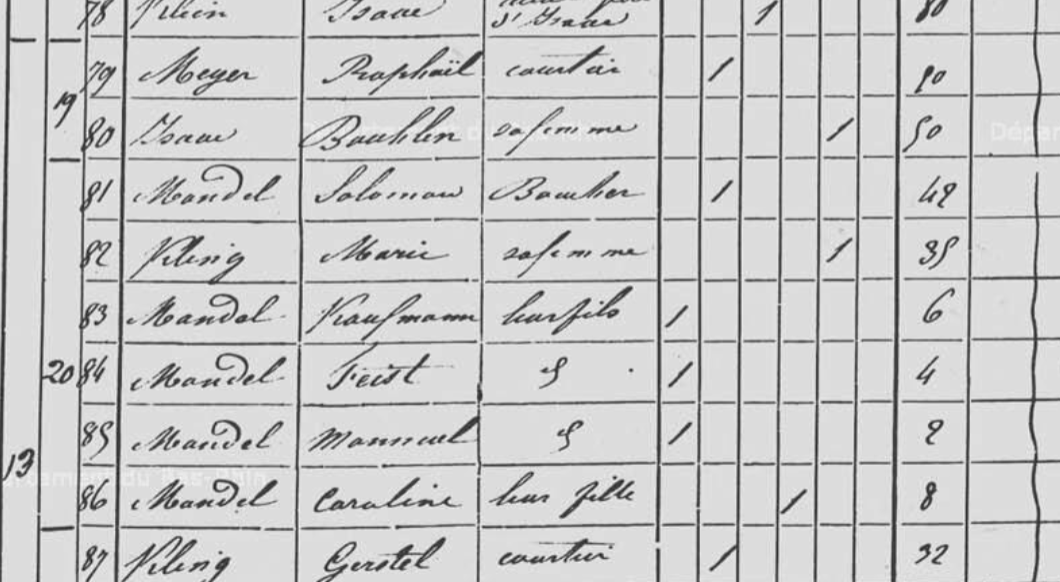 78 Klein Isaac d'Isaac 1 80
79 Meyer Raphaël courtier 1 50
19
80 Isaac Bauhlen sa femme 1 50
81 Mandel Salomon Boucher 1 42
82 Kling Marie sa femme 1 35
83 Mandel Kaufmann leur fils 1 6
20 84 Mandel Feist d 1 4
85 Mandel Mannuel d 1 2
13
86 Mandel Caroline leur fille 1 8
87 Kling Gerstel courtier 1 32